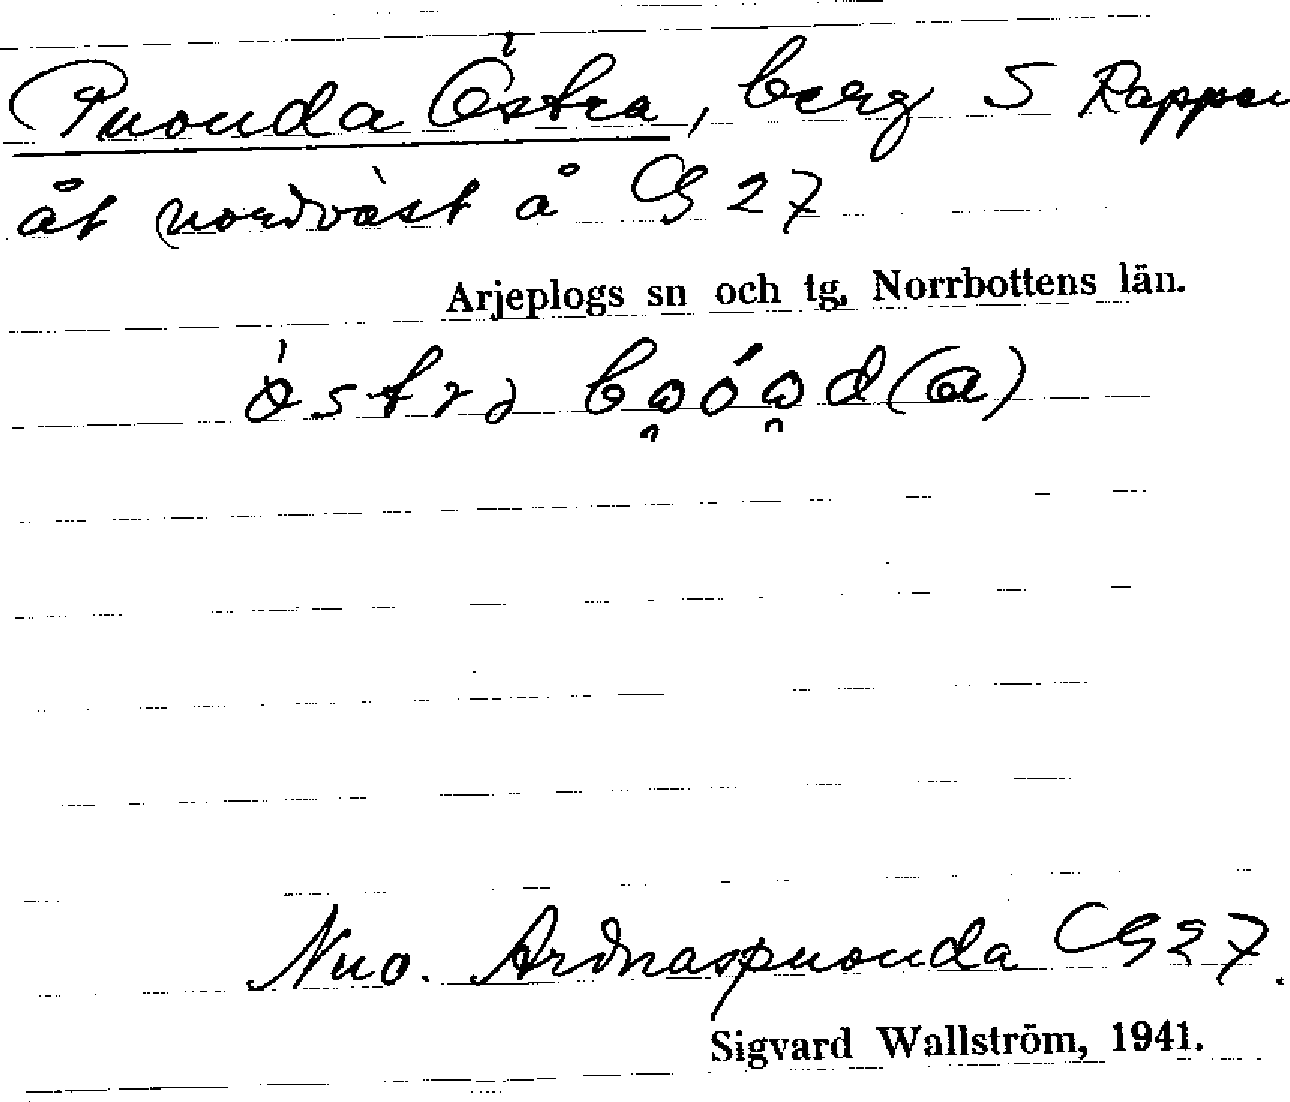 Puonda Östra, berg S Rappen
åt nordväst å GS 27
Arjeplogs sn och tg, Norrbottens län.
Nuo. Ardnaspuonda GS 27.
Sigvard Wallström, 1941.